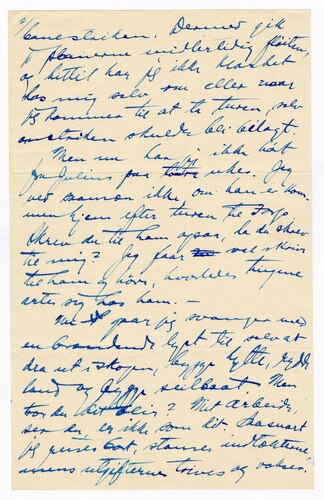 2/
banestreiken. Dermed gik
jo planerne midlertidig fløiten,
og hittil har jeg ikke klarhet
hos mig selv om eller naar
jeg kommer til at ta turen, selv
om streiken skulde bli bilagt.
Men nu har vi ikke hørt
fra Julius paa to uker. Jeg
ved saaman ikke, om han er kom-
men hjem efter turen til Togo.
Skrev du til ham ogsaa, da du skrev
til mig? Jeg faar vel skrive
til ham og høre, hvorledes tingene
arter sig hos ham. —
Nu gaar jeg svanger med
en brændende lyst til selv at
dra ut i skogen, bygge hytte, rydde
land og bygge seilbaat. Men
hvor blir? Mit arbeide,
ser du, er ikke som dit. Saasnart
jeg reiser bort, stanses indtægterne,
mens utgifterne trives og vokser.